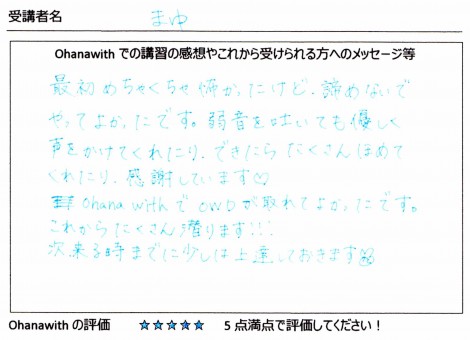 受講者名 まゆ
Ohanawith での講習の感想やこれから受けられる方へのメッセージ等
最初めちゃくちゃ怖かったけど、諦めないで
やってよかったです。弱音を吐いても優しく
声をかけてくれたり、できたらたくさんほめて
くれたり、感謝しています♡
Ohana with で OWD が取れてよかったです。
これからたくさん潜ります!!!
次来る時までに少しは上達しておきます
Ohanawith の評価 ★★★★★ 5 点満点で評価してください！